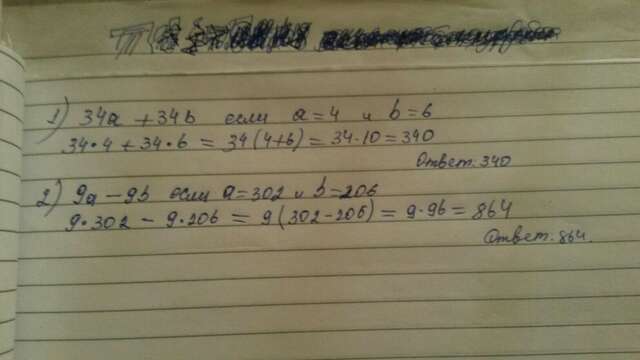 1) 34a + 34b если a = 4 и b = 6
34·4 + 34·6 = 34(4+6) = 34·10 = 340
Ответ: 340
2) 9a - 9b если a = 302 и b = 206
9·302 - 9·206 = 9(302-206) = 9·96 = 864
Ответ: 864.